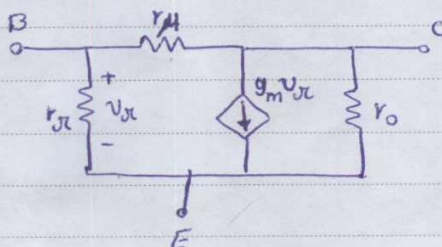 B rμ C
+
rπ vπ gmvπ ro
-
E